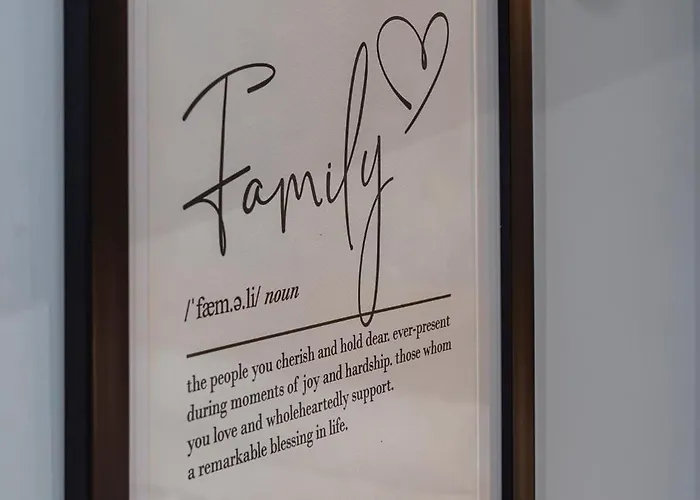 Family
/ˈfæm.ə.li/ noun
the people you cherish and hold dear. ever-present
during moments of joy and hardship. those whom
you love and wholeheartedly support.
a remarkable blessing in life.